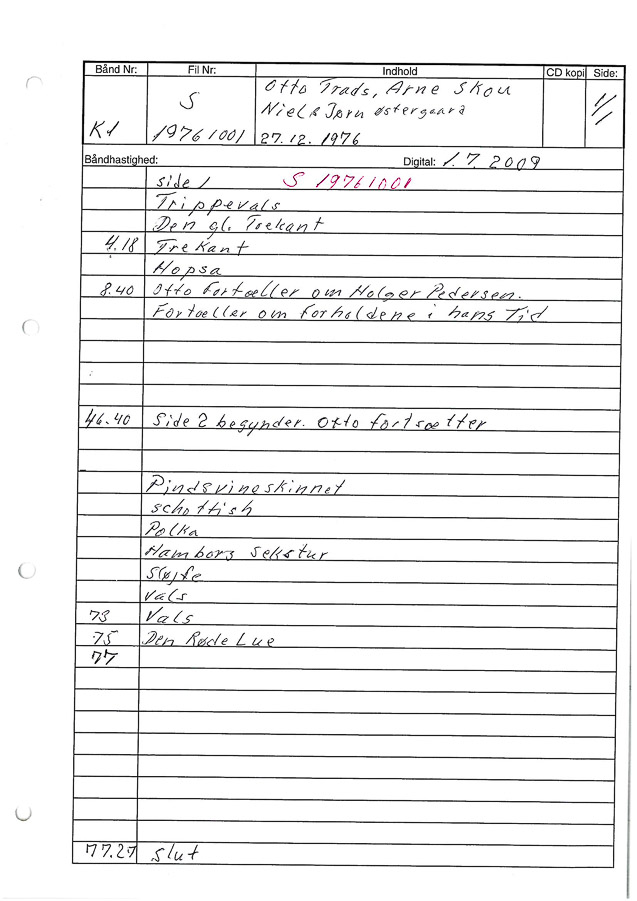 Bånd Nr: Fil Nr: Indhold CD kopi Side:
Otto Trads, Arne Skou
S Niels Jørn Østergaard 1/1
K1 19761001 27.12.1976
Båndhastighed: Digital: 1.7.2009
side 1 S 19761001
Trippevals
Den gl. Trekant
4.18 Trekant
Hopsa
8.40 Otto Fortæller om Holger Pedersen.
Fortæller om forholdene i hans Tid
46.40 Side 2 begynder. Otto fortsætter
Pindsvineskinnet
schottish
Polka
Hamborg sekstur
Sløjfe
Vals
73 Vals
75 Den Røde Lue
77
77.27 Slut